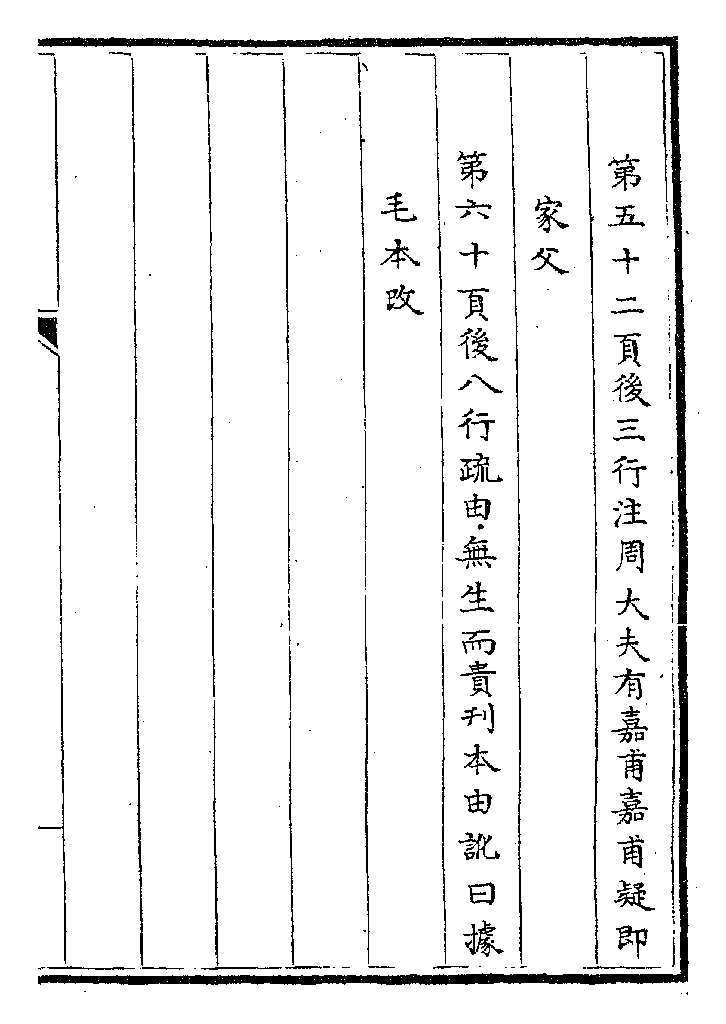 第五十二頁後三行注周大夫有嘉甫嘉甫疑即
家父
第六十頁後八行疏由無生而貴刋本由訛曰據
毛本改